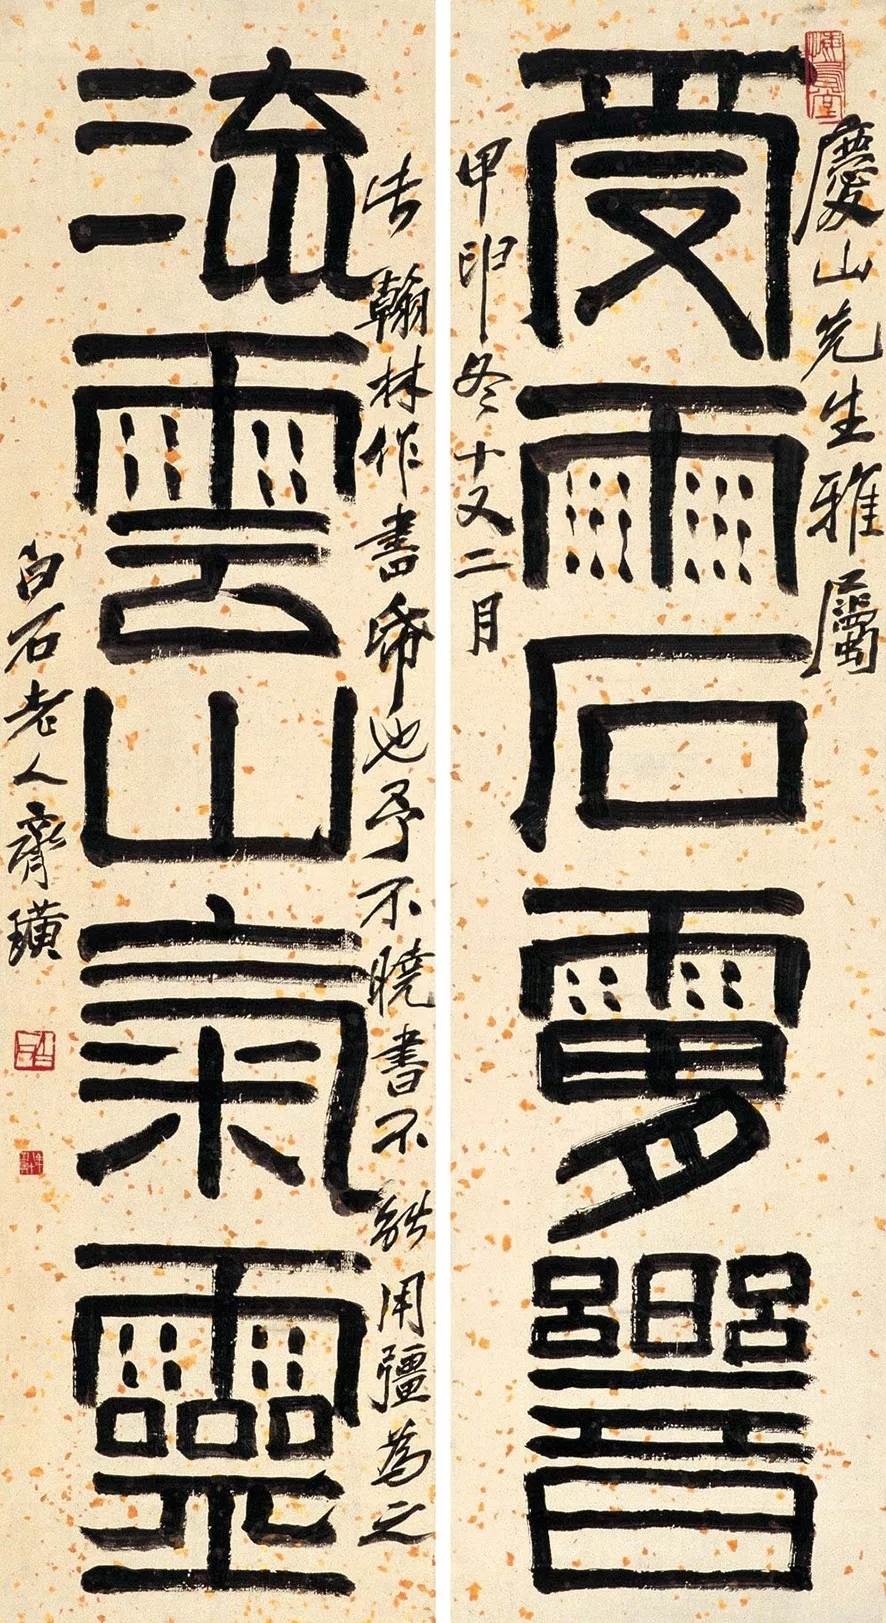 慶山先生雅屬
受雨石響
甲申冬十又二月
法翰林作書也予不曉書不能用疆為之
流雲山氣靈
白石老人齊璜
悔烏堂